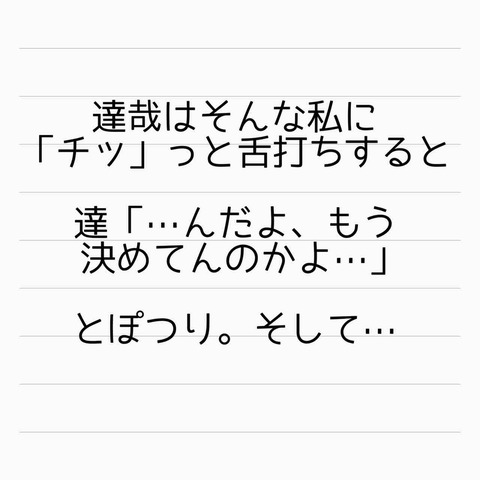 達哉はそんな私に
「チッ」っと舌打ちすると
達「…んだよ、もう
決めてんのかよ…」
とぽつり。そして…